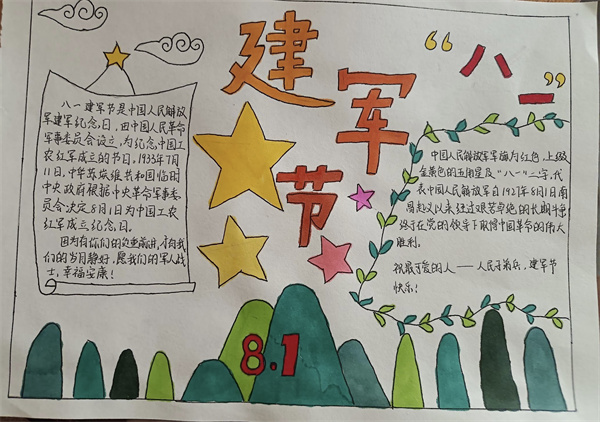 建军节
“八一”
八一建军节是中国人民解放
军建军纪念日，由中国人民革命
军事委员会设立，为纪念中国工
农红军成立的节日。1933年7月
11日，中华苏维埃共和国临时
中央政府根据中央革命军事委
员会决定8月1日为中国工农
红军成立纪念日。
因为有你们的负重前行，才有我
们的岁月静好，愿我们的军人战
士，幸福安康！
中国人民解放军军旗为红色，上缀
金黄色的五角星及“八一”二字，代
表中国人民解放军自1927年8月1日南
昌起义以来经过艰苦卓绝的长期斗争
终于在党的领导下取得中国革命的伟大
胜利。
祝最可爱的人——人民子弟兵，建军节
快乐！
8.1